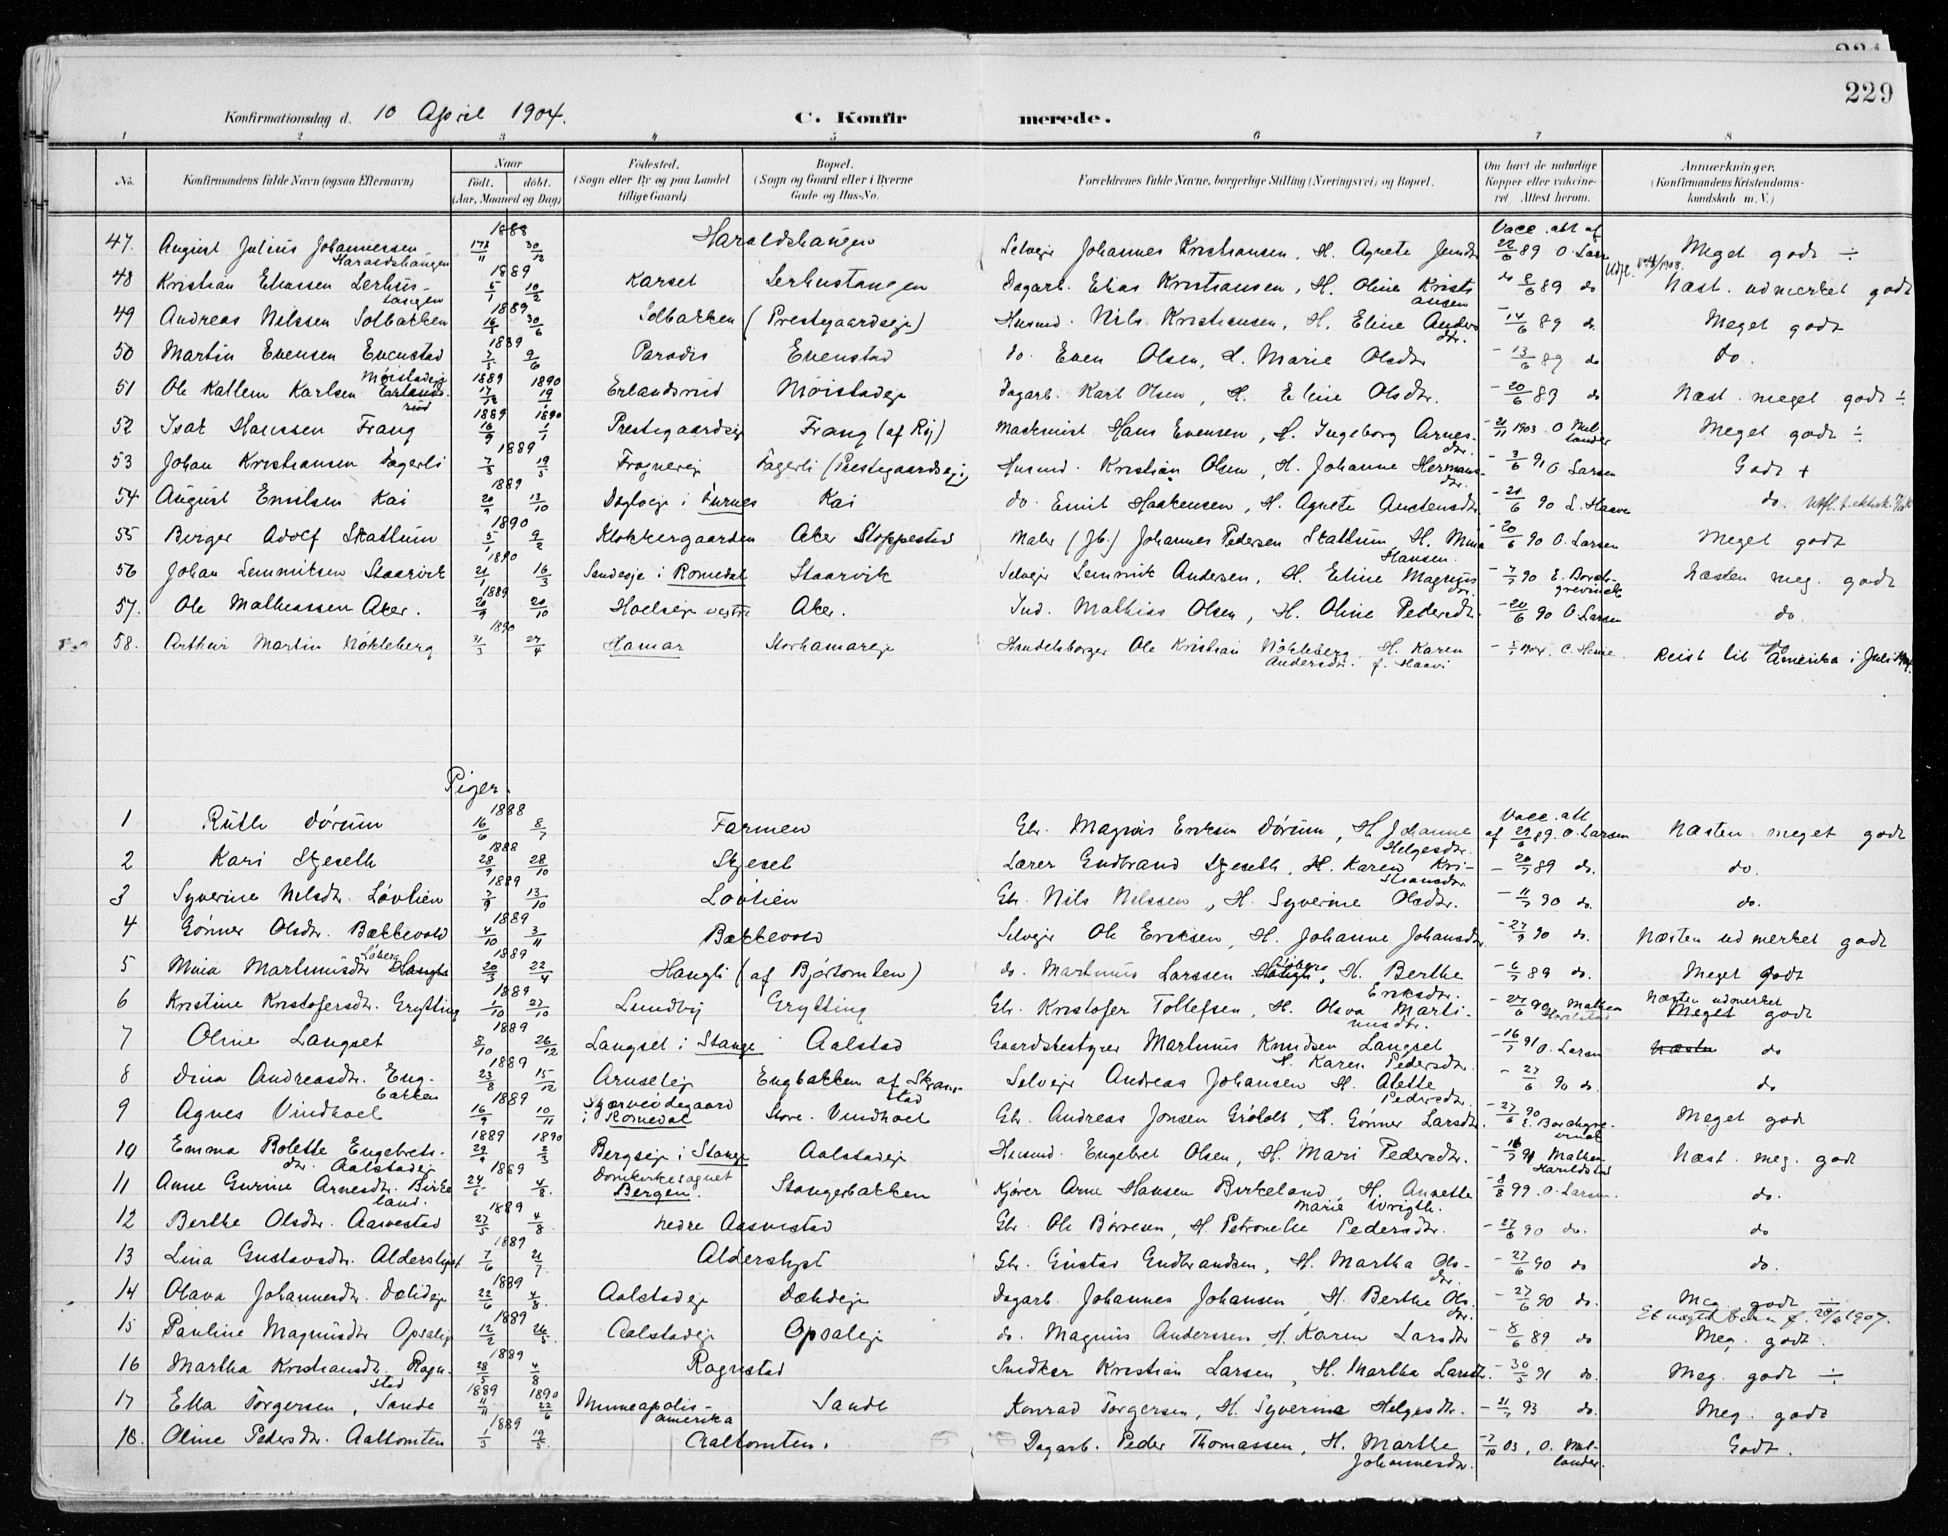 229
Konfirmationsdag d. 10 April 1904. C. Konfirmerede.
1 2 3 4 5 6 7 8
No. Konfirmandens fulde Navn (ogsaa Efternavn) Naar født. døbt. (Aar, Maaned og Dag) Fødested. (Sogn eller By og paa Landet tillige Gaard) Bopæl. (Sogn og Gaard eller i Byerne Gade og Hus-No. Forældrenes fulde Navne, borgerlige Stilling (Næringsvei) og Bopæl. Om havt de naturlige Kopper eller vaccineret. Attest herom. Anmærkninger. (Konfirmandens Kristendomskundskab m. V.)
47. August Julius Johannessen Haraldshaugen 1888 30/12 Haraldshaugen Selveier Johannes Kristiansen, H. Agnete Vacc. att af 22/6 89 O. Larsen Meget godt ÷
48 Kristian Eliassen Lerhustangen 1889 5/1 10/2 Karset Lerhustangen Dagarb. Elias Kristiansen, H. Oline Kristiansen 8/6 89 do Næst. udmerket godt
49 Andreas Nilssen Solbakken 1889 16/5 30/6 Solbakken (Prestegaardseje) Husmd. Nils Kristiansen, H. Eline Andersdtr. - 14/6 89 do Meget godt
50 Martin Evensen Evenstad 1889 7/5 9/6 Paradis Evenstad do. Even Olsen, H. Marie Olsdtr - 13/6 89 do do.
51 Ole Kattem Karlsen Erlandsrud Møistadeje 1889 1890 17/12 19/1 Erlandsrud Møistadeje Dagarb. Karl Olsen, H. Eline Olsdtr. - 20/6 89 do Næst. meget godt ÷
52 Isak Hanssen Frang 1889 1890 16/9 1/1 Prestegaardseje Frang (af Ry) Maskinist Hans Evensen, H. Ingeborg Arnesdtr. - 21/11 1903 O Mellander Meget godt ÷
53 Johan Kristiansen Fagerli 1889 7/3 19/5 Frognereje Fagerli (Prestegaardseje) Husmd. Kristian Olsen, H. Johanne Hermansdtr. - 3/6 91 O Larsen Godt +
54 August Emilsen Kai 1889 20/9 13/10 i Furnes Kai do. Emil Haakensen, H. Agnete Anstensdtr - 21/6 90 L. Haave do.
55 Birger Adolf Skattum 1890 5/1 9/2 Klokkergaarden Aker Stoppested Maler (Jb.) Johannes Pedersen Skattum, H. Mina Hansen. - 20/6 90 O. Larsen Meget godt
56 Johan Lemmiksen Staarvik 1890 21/1 16/3 Sandeseje i Romedal Staarvik Selveier Lemmik Andersen, H. Eline Magnusdtr. - 7/7 90 E. Borchgrevinck Næsten meg. godt
57. Ole Mathiassen Aker. 1889 20/9 20/10 Hoelseje vestre Aker. Ind. Mathias Olsen, H. Oline Pedersdtr. - 20/6 90 O. Larsen do.
58. Arthur Martin Nökleberg 1890 31/3 27/4 Hamar Storhamareje Handelsborger Ole Kristian Nökleberg, H. Karen Andersdtr. f. Haavi C. Heine. do Reist til Amerika i Juli 1904.
Piger.
1 Ruth Dørum 1888 16/6 8/7 Farmen Gbr. Magnus Eriksen Dørum, H. Johanne Helgesdtr. Vacc. att af 29/6 89. O. Larsen Næsten meget godt
2 Kari Skjeseth 1888 28/9 28/10 Skjeset Lærer Gudbrand Skjeseth, H. Karen Kristiansdtr. - 20/7 89 do. do.
3 Syverine Nilsdtr. Løvlien 1889 7/9 13/10 Løvlien Gbr. Nils Nilssen, H. Syverine Olsdtr. - 11/7 90 do. do.
4 Gønner Olsdtr. Bækkevold 1889 4/10 3/11 Bækkevold Selveier Ole Eriksen, H. Johanne Johansdtr - 27/7 90 do. Næsten udmerket godt
5 Mina Martinusdtr Haugli Løberg 1889 20/3 22/4 Haugli (af Bjørtomten) do. Martinus Larssen Haugli Løberg, H. Berthe Eriksdtr. - 6/7 89 do. Meget godt
6 Kristine Kristofersdtr. Grytting 1889 1/10 27/10 Lundby Grytting Gbr. Kristofer Tollefsen, H. Olava Martinusdtr. - 27/6 90 Mathea Harildstad Næsten udmerket Meget godt
7 Oline Langset 1889 8/10 26/12 Langset i Stange Aalstad Gaardsbestyrer Martinus Knudsen Langset H. Karen Pedersdtr. - 16/7 91 O. Larsen Næsten do
8 Dina Andreasdtr. Engbakken 1889 23/8 15/12 Arnseteje Engbakken af Skramstad Selveier Andreas Johansen H. Alette Pedersdtr. - 27/6 90 do. do
9 Agnes Vindhoel 1889 16/9 10/11 i Romedal Store Vindhoel Gbr. Andreas Jonsen Grøholt, H. Gønner Larsdtr. - 27/6 90 E. Borchgrevinck Meget godt
10 Emma Bolette Engebretsdtr. Aalstadeje 1889 1890 29/9 2/3 Bergseje i Stange Aalstadeje Husmd. Engebret Olsen, H. Mari Pedersdtr. - 16/7 91 Mathea Harildstad Næst. meg. godt
11 Anne Gurine Arnesdtr. Birkeland. 1889 24/5 4/8. Domkirkesognet Bergen. Stangerbakken Kjører Arne Hansen Birkeland, H. Annette Marie Wrigth. - 8/8 99. O. Larsen. do.
12 Berthe Olsdtr. Aasvestad 1889 27/5 4/8 Nedre Aasvestad Gbr. Ole Børresen, H. Petronelle Pedersdtr. - 27/6 90 do. do
13 Lina Gustavsdtr. Alderslyst 1889 7/6 21/7 Alderslyst Gbr. Gustav Gudbrandsen, H. Martha Olsdtr. - 27/6 90 do do.
14 Olava Johannesdtr. Dælideje 1889 22/6 4/8. Aalstadeje Dælideje Dagarb. Johannes Johansen, H. Berthe Olsdtr. - 27/6 90 do. Meg. godt ÷ Et uægte barn f. 20/6 1907.
15 Pauline Magnusdtr Opsaleje 1889 12/2 26/5. Aalstadeje Opsaleje do. Magnus Anderssen, H. Karen Larsdtr - 8/6 89 do Meg. godt.
16 Martha Kristiansdtr. Rognstad 1889 28/5 4/8 Rognstad Snedker Kristian Larsen, H. Martha Larsdtr. - 30/5 91 do. Meg. godt ÷
17 Ella Torgersen, Sande 1889 1890 11/11 22/6 Minneapolis - Amerika Sande Konrad Torgersen, H. Syverine Helgesdtr. - 21/7 93 do. Meg. godt
18. Oline Pedersdtr. Aaltomten 1889 1/3 19/5. Aaltomten. Dagarb. Peder Thomassen, H. Marthe Johannesdtr. - 7/10 03, O. Mellander. Godt.